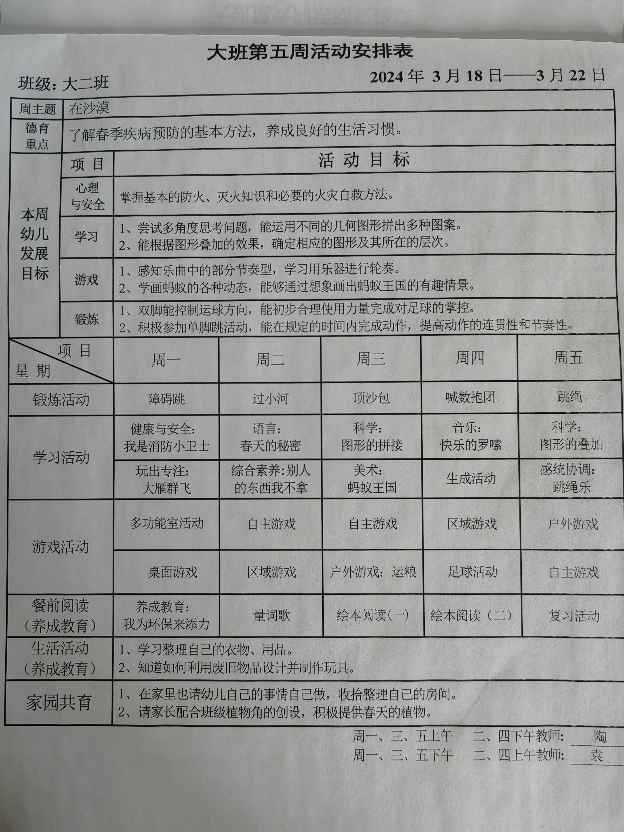 大班第五周活动安排表
班级：大二班 2024 年 3 月 18 日——3 月 22 日
周主题 在沙漠
德育重点 了解春季疾病预防的基本方法，养成良好的生活习惯。
本周幼儿发展目标 项 目 活 动 目 标
心理与安全 掌握基本的防火、灭火知识和必要的火灾自救方法。
学习 1、尝试多角度思考问题，能运用不同的几何图形拼出多种图案。
2、能根据图形叠加的效果，确定相应的图形及其所在的层次。
游戏 1、感知乐曲中的部分节奏型，学习用乐器进行轮奏。
2、学画蚂蚁的各种动态，能够通过想象画出蚂蚁王国的有趣情景。
锻炼 1、双脚能控制运球方向，能初步合理使用力量完成对足球的掌控。
2、积极参加单脚跳活动，能在规定的时间内完成动作，提高动作的连贯性和节奏性。
项 目 星 期 周一 周二 周三 周四 周五
锻炼活动 障碍跳 过小河 顶沙包 喊数抱团 跳绳
学习活动 健康与安全： 语言： 科学： 音乐： 科学：
我是消防小卫士 春天的秘密 图形的拼接 快乐的罗嗦 图形的叠加
玩出专注： 综合素养：别人 美术： 生成活动 感统协调：
大雁群飞 的东西我不拿 蚂蚁王国 跳绳乐
游戏活动 多功能室活动 自主游戏 自主游戏 区域游戏 户外游戏
桌面游戏 区域游戏 户外游戏：运粮 足球活动 自主游戏
餐前阅读 养成教育： 量词歌 绘本阅读（一） 绘本阅读（二） 复习活动
（养成教育） 我为环保来添力
生活活动 1、学习整理自己的衣物、用品。
（养成教育） 2、知道如何利用废旧物品设计并制作玩具。
家园共育 1、在家里也请幼儿自己的事情自己做，收拾整理自己的房间。
2、请家长配合班级植物角的创设，积极提供春天的植物。
周一、三、五上午 二、四下午教师： 陶
周一、三、五下午 二、四上午教师： 袁